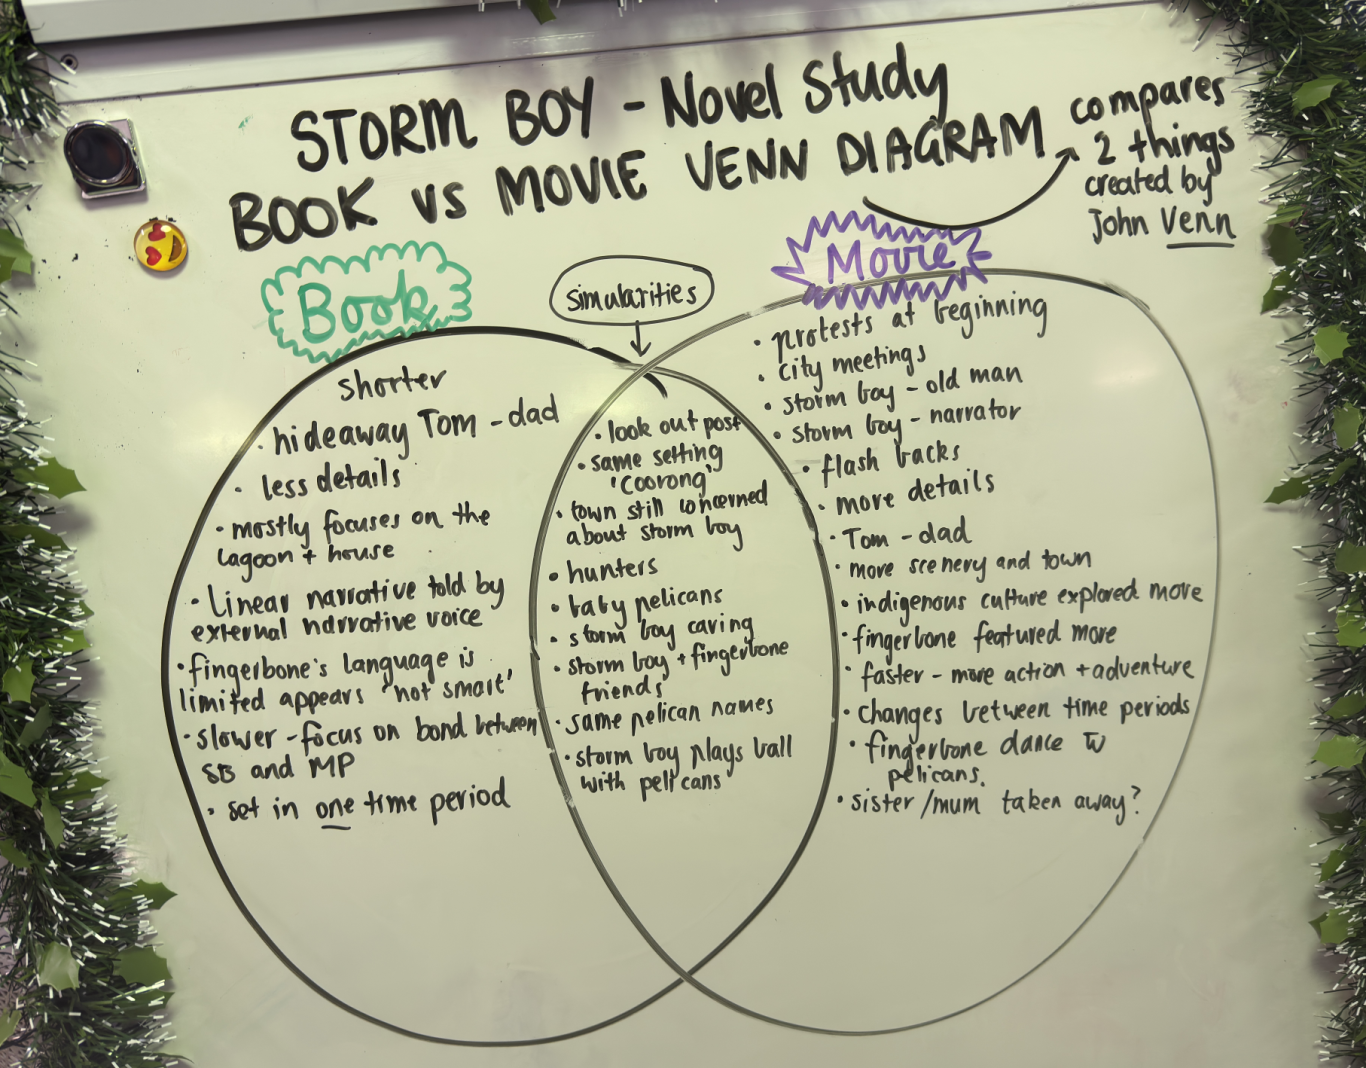 STORM BOY - Novel Study
BOOK vs MOVIE VENN DIAGRAM
compares
2 things
created by
John Venn
Book
simularities
Movie
shorter
• hideaway Tom - dad
• less details
• mostly focuses on the
lagoon + house
• Linear narrative told by
external narrative voice
• fingerbone's language is
limited appears 'not smart'
• slower - focus on bond between
SB and MP
• set in one time period
• look out post
• same setting
'Coorong'
• town still concerned
about storm boy
• hunters
• baby pelicans
• storm boy caring
• storm boy + fingerbone
friends
• same pelican names
• storm boy plays ball
with pelicans
• protests at beginning
• city meetings
• storm boy - old man
• storm boy - narrator
• flash backs
• more details
• Tom - dad
• more scenery and town
• indigenous culture explored more
• fingerbone featured more
• faster - more action + adventure
• changes between time periods
• fingerbone dance w
pelicans.
• sister/mum taken away?